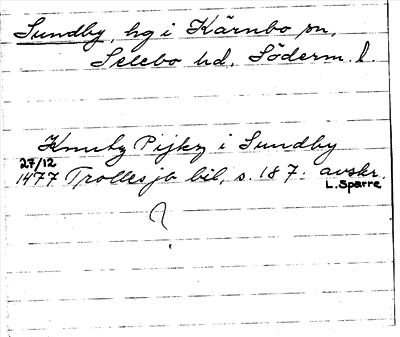 Sundby, hg i Kärnbo sn,
Selebo hd, Söderm. l.
Knuty Pijky i Sundby
27/12
1477 Trollesjö bil, s. 187. avskr.
L. Sparre
?